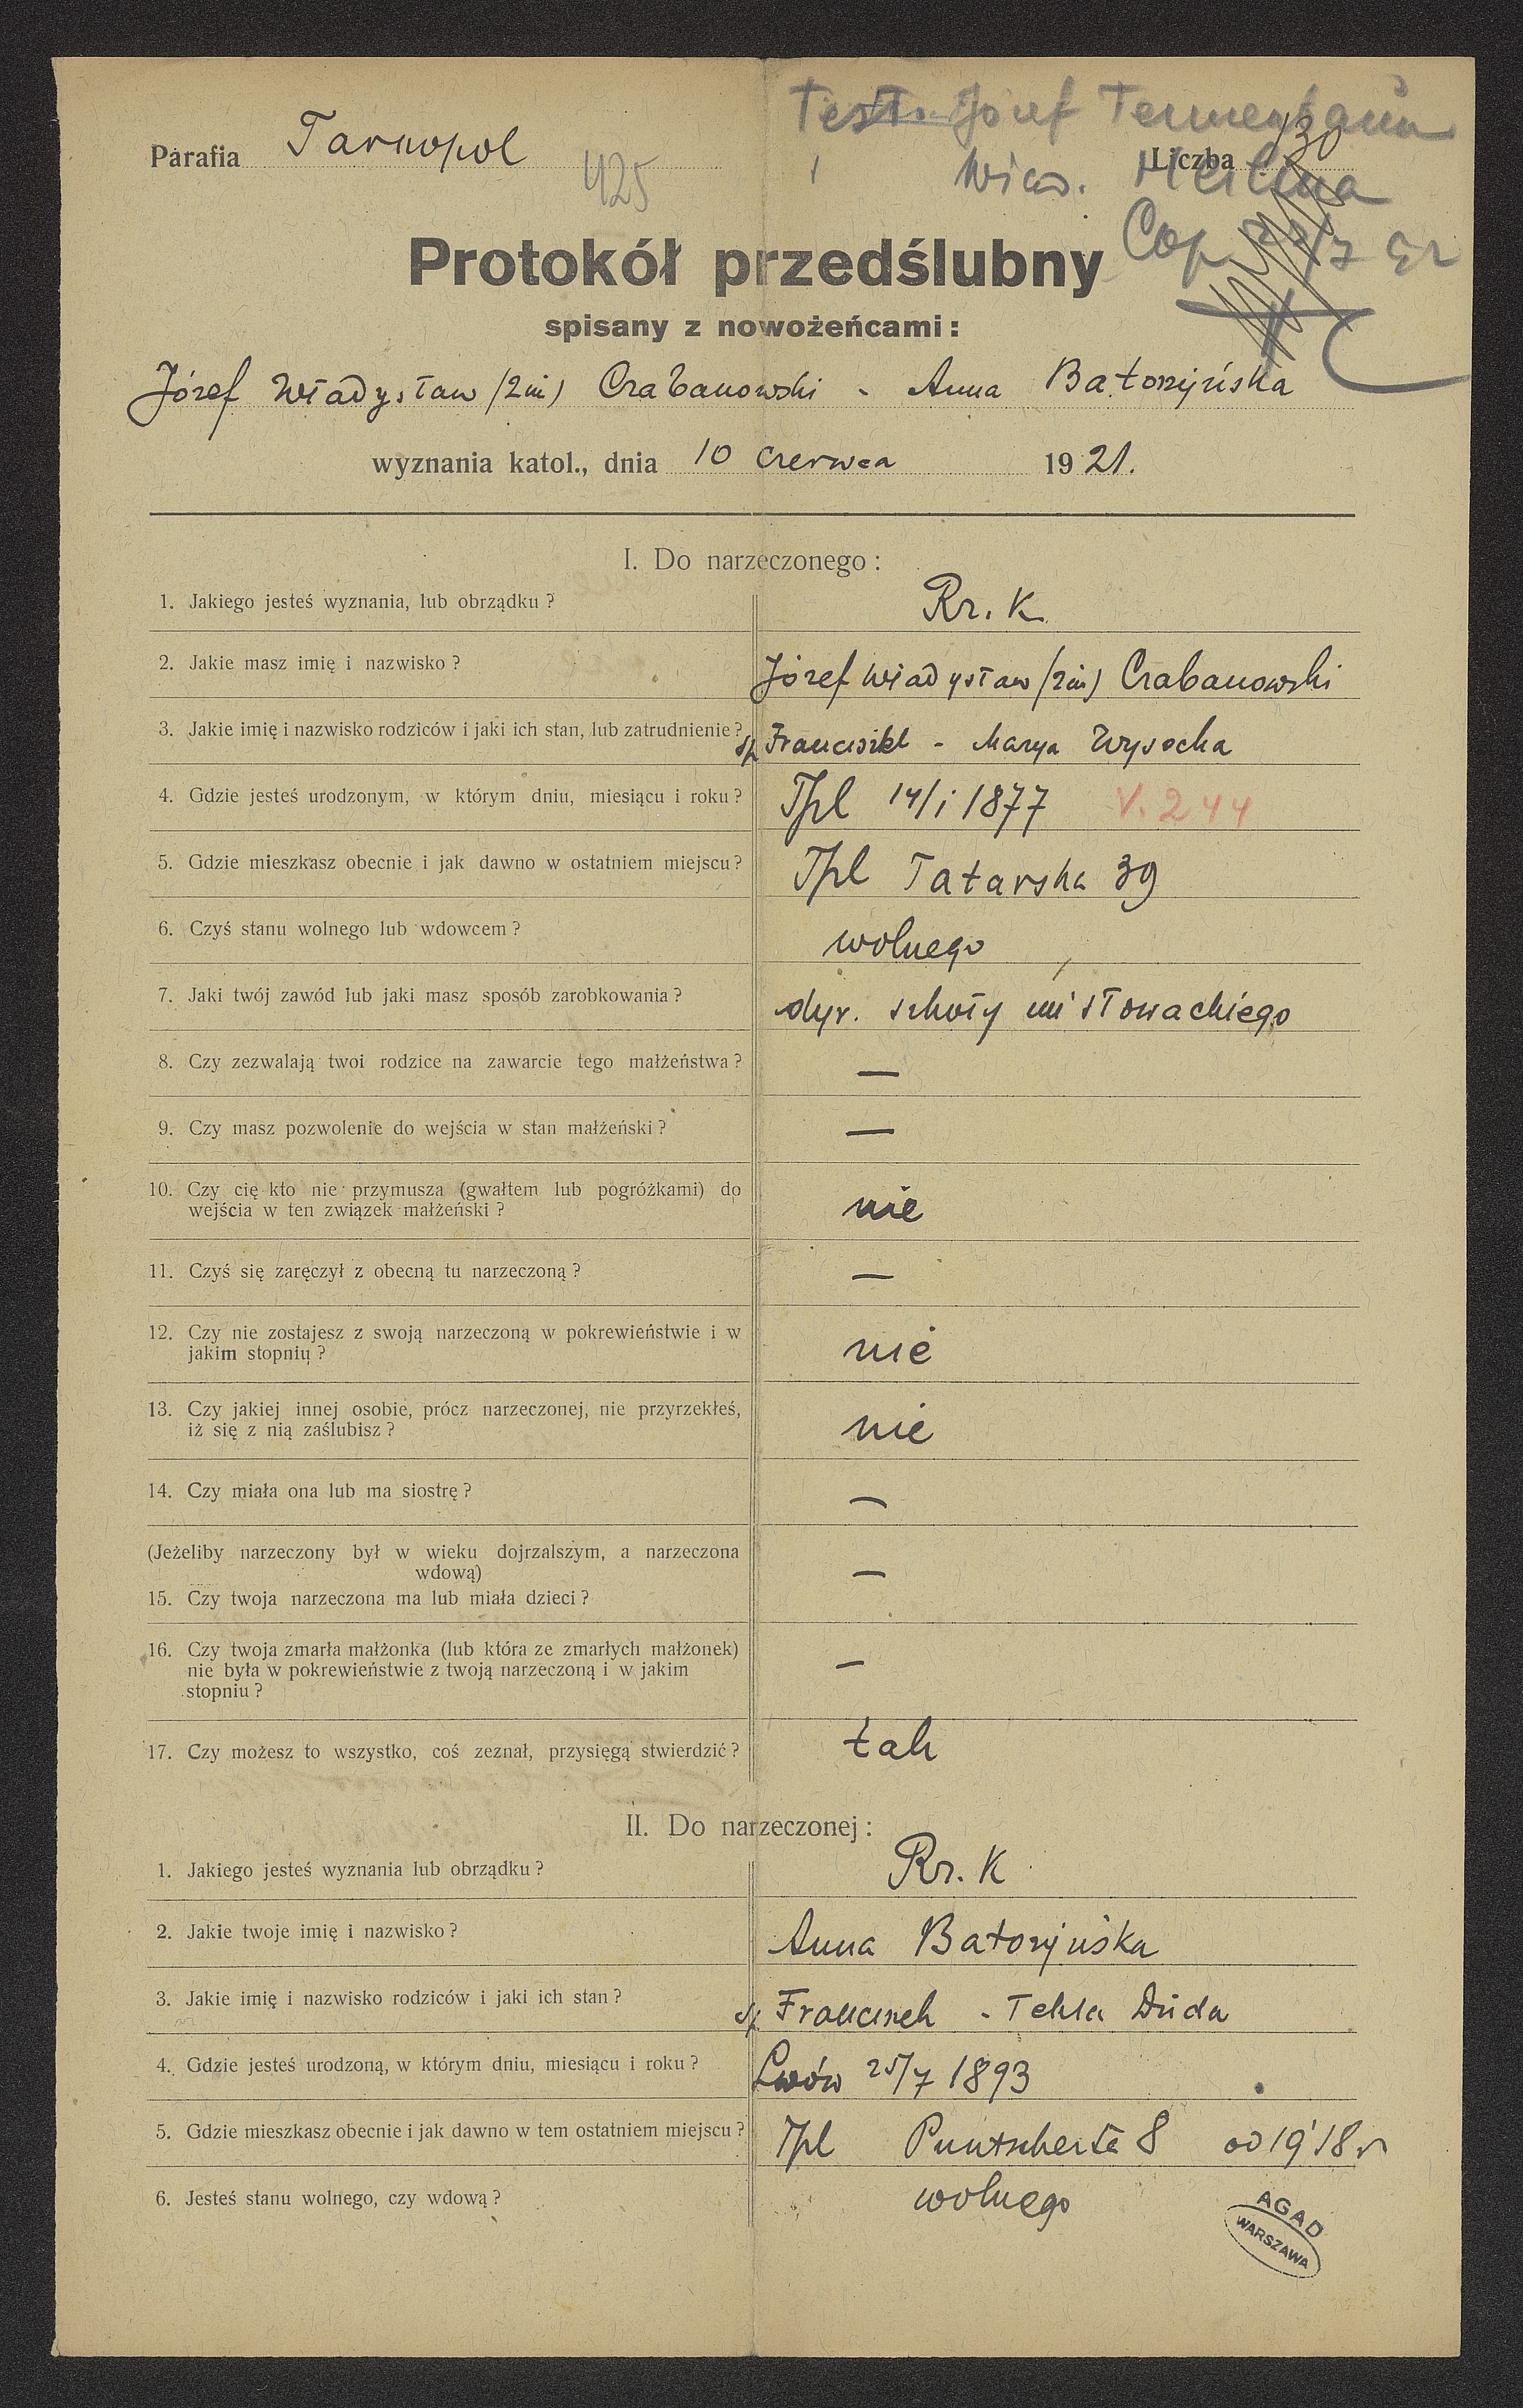 Test. Józef
Parafia Tarnopol
425
Liczba 130
Wicz.
Cop. 7 21
Protokół przedślubny
spisany z nowożeńcami:
Józef Władysław (2 im) Czabanowski - Anna Batorzyńska
wyznania katol., dnia 10 czerwca 1921.
I. Do narzeczonego:
1. Jakiego jesteś wyznania, lub obrządku? Rz. K.
2. Jakie masz imię i nazwisko? Józef Władysław (2 im) Czabanowski
3. Jakie imię i nazwisko rodziców i jaki ich stan, lub zatrudnienie? śp Franciszek - Marya Wysocka
4. Gdzie jesteś urodzonym, w którym dniu, miesiącu i roku? Tpl 14/i 1877 V. 244
5. Gdzie mieszkasz obecnie i jak dawno w ostatniem miejscu? Tpl Tatarska 39
6. Czyś stanu wolnego lub wdowcem? wolnego
7. Jaki twój zawód lub jaki masz sposób zarobkowania? dyr. szkoły im Słowackiego
8. Czy zezwalają twoi rodzice na zawarcie tego małżeństwa? —
9. Czy masz pozwolenie do wejścia w stan małżeński? —
10. Czy cię kto nie przymusza (gwałtem lub pogróżkami) do
wejścia w ten związek małżeński? nie
11. Czyś się zaręczył z obecną tu narzeczoną? —
12. Czy nie zostajesz z swoją narzeczoną w pokrewieństwie i w
jakim stopniu? nie
13. Czy jakiej innej osobie, prócz narzeczonej, nie przyrzekłeś,
iż się z nią zaślubisz? nie
14. Czy miała ona lub ma siostrę? —
(Jeżeliby narzeczony był w wieku dojrzalszym, a narzeczona
wdową) —
15. Czy twoja narzeczona ma lub miała dzieci?
16. Czy twoja zmarła małżonka (lub która ze zmarłych małżonek)
nie była w pokrewieństwie z twoją narzeczoną i w jakim —
stopniu?
17. Czy możesz to wszystko, coś zeznał, przysięgą stwierdzić? tak
II. Do narzeczonej:
1. Jakiego jesteś wyznania lub obrządku? Rz. K
2. Jakie twoje imię i nazwisko? Anna Batorzyńska
3. Jakie imię i nazwisko rodziców i jaki ich stan? śp Franciszek - Tekla Duda
4. Gdzie jesteś urodzoną, w którym dniu, miesiącu i roku? Lwów 25/7 1893
5. Gdzie mieszkasz obecnie i jak dawno w tem ostatniem miejscu? Tpl Puntscherta 8 od 1918 r
6. Jesteś stanu wolnego, czy wdową? wolnego
AGAD
WARSZAWA